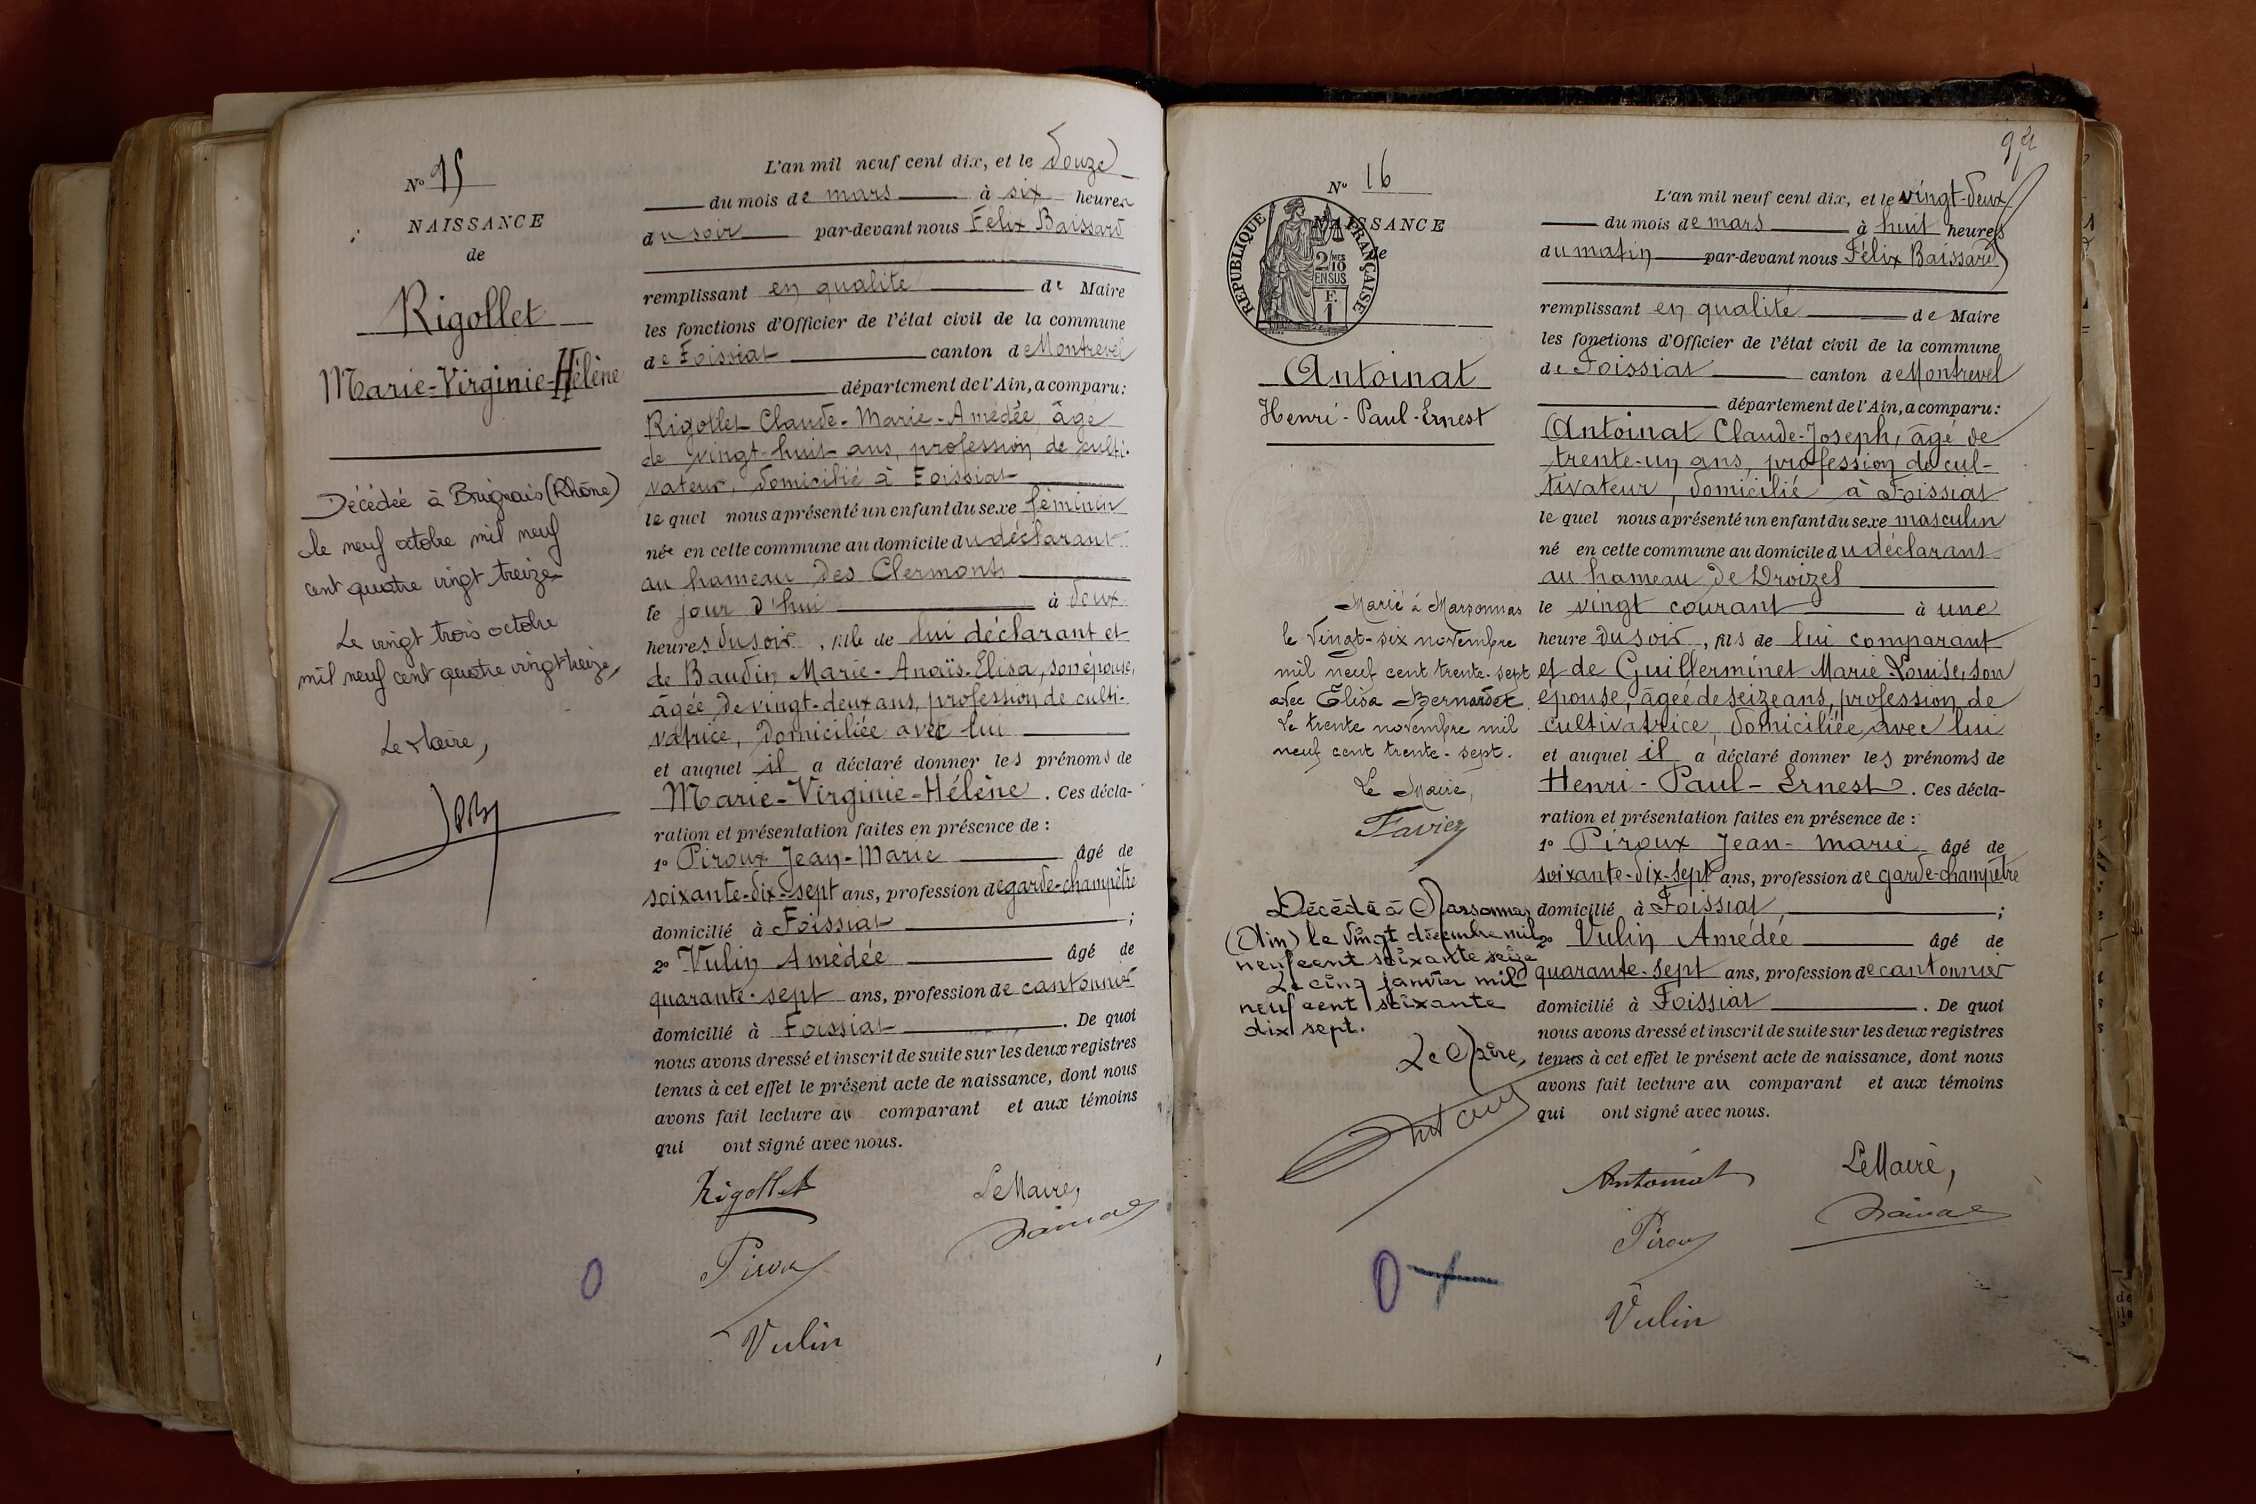 N° 15
NAISSANCE
de
Rigollet
Marie-Virginie-Hélène
Décédée à Brignais (Rhône)
le neuf octobre mil neuf
cent quatre vingt treize
Le vingt trois octobre
mil neuf cent quatre vingt treize,
Le Maire,
L'an mil neuf cent dix, et le douze
du mois de mars à six heures
du soir par-devant nous Félix Baissard
remplissant en qualité de Maire
les fonctions d'Officier de l'état civil de la commune
de Foissiat canton de Montrevel
département de l'Ain, a comparu:
Rigollet Claude-Marie-Amédée, âgé
de vingt-huit ans, profession de culti-
vateur, domicilié à Foissiat
le quel nous a présenté un enfant du sexe féminin
née en cette commune au domicile du déclarant
au hameau des Clermonts
le jour d'hui à deux
heures du soir, fille de lui déclarant et
de Baudin Marie-Anaïs-Elisa, son épouse,
âgée de vingt-deux ans, profession de culti-
vatrice, domiciliée avec lui
et auquel il a déclaré donner les prénoms de
Marie-Virginie-Hélène. Ces décla-
ration et présentation faites en présence de :
1° Piroux Jean-Marie âgé de
soixante-dix-sept ans, profession de garde-champêtre
domicilié à Foissiat ;
2° Vulin Amédée âgé de
quarante-sept ans, profession de cantonnier
domicilié à Foissiat. De quoi
nous avons dressé et inscrit de suite sur les deux registres
tenus à cet effet le présent acte de naissance, dont nous
avons fait lecture au comparant et aux témoins
qui ont signé avec nous.
Rigollet
Le Maire,
Piroux
Vulin
N° 16
NAISSANCE
de
RÉPUBLIQUE FRANÇAISE
2/10
MES
EN SUS
F.
1
Antoinat
Henri-Paul-Ernest
Marié à Marsonnas
le vingt-six novembre
mil neuf cent trente-sept
avec Elisa Bernardet.
Le trente novembre mil
neuf cent trente-sept.
Le Maire,
Favier
Décédé à Marsonnas
(Ain) le vingt décembre mil
neuf cent soixante seize
Le cinq janvier mil
neuf cent soixante
dix sept.
Le Maire,
L'an mil neuf cent dix, et le vingt-deux
du mois de mars à huit heures
du matin par-devant nous Félix Baissard
remplissant en qualité de Maire
les fonctions d'Officier de l'état civil de la commune
de Foissiat canton de Montrevel
département de l'Ain, a comparu:
Antoinat Claude-Joseph, âgé de
trente-un ans, profession de cul-
tivateur, domicilié à Foissiat
le quel nous a présenté un enfant du sexe masculin
né en cette commune au domicile du déclarant
au hameau de Droizel
le vingt courant à une
heure du soir, fils de lui comparant
et de Guillerminet Marie Louise, son
épouse, âgée de seize ans, profession de
cultivatrice, domiciliée avec lui
et auquel il a déclaré donner les prénoms de
Henri-Paul-Ernest. Ces décla-
ration et présentation faites en présence de :
1° Piroux Jean-Marie âgé de
soixante-dix-sept ans, profession de garde-champêtre
domicilié à Foissiat, ;
2° Vulin Amédée âgé de
quarante-sept ans, profession de cantonnier
domicilié à Foissiat. De quoi
nous avons dressé et inscrit de suite sur les deux registres
tenus à cet effet le présent acte de naissance, dont nous
avons fait lecture au comparant et aux témoins
qui ont signé avec nous.
Antoinat
Le Maire,
Piroux
Vulin